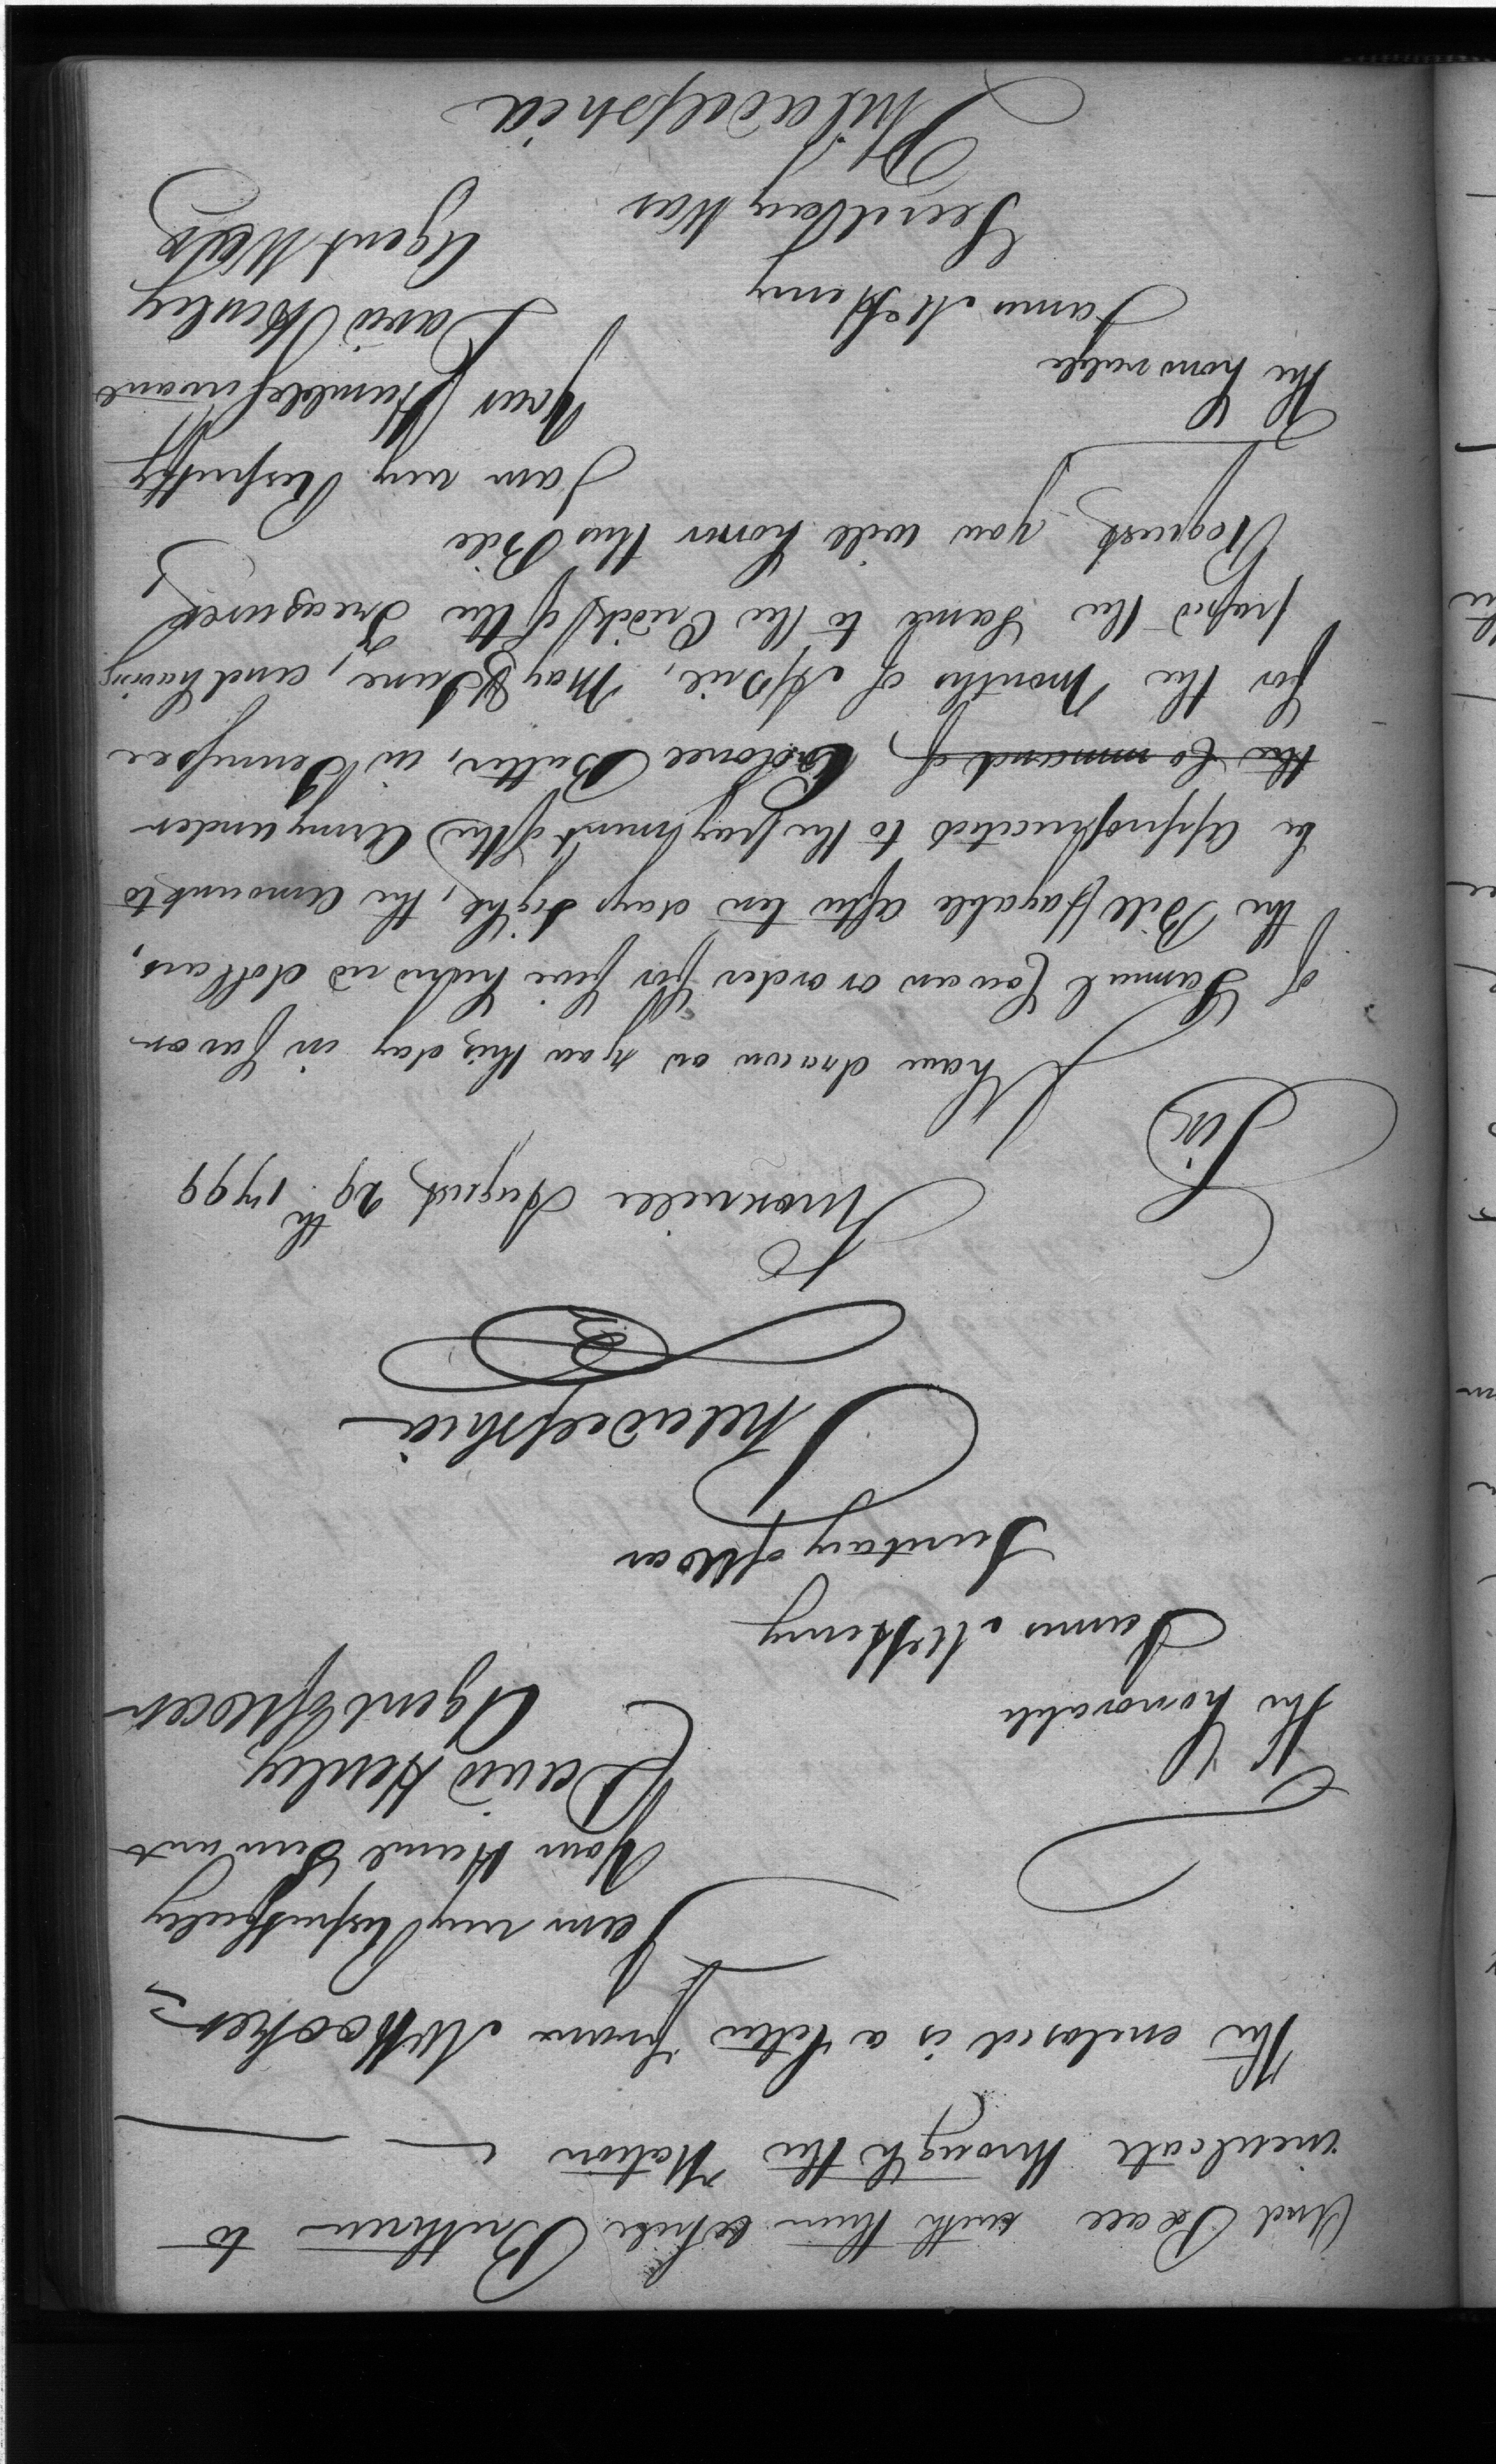 And Peace with their white Brethren to
inculcate through the Nation
The enclosed is a letter from Mr Hooker
I am very Respectfully
Your Hume Servant
David Henley
Agent of War
The honorable
James McHenry
Secretary of War
Philadelphia
Knoxville August 29th 1799
Sir
I have drawn on you this day in favor
of Samuel Cowan or order for five hundred dollars,
the Bill payable after ten days sight, the amount to
be appropriated to the payment of the Army under
the Command of Colonel Butler, in Tennessee
for the months of April, May & June, and having
passed the Same to the Credit of the Treasurer,
Request you will honor this Bill
I am very Respectfy
Your Humble Servant
David Henley
Agent War
The honorable
James McHenry
Secretary War
Philadelphia